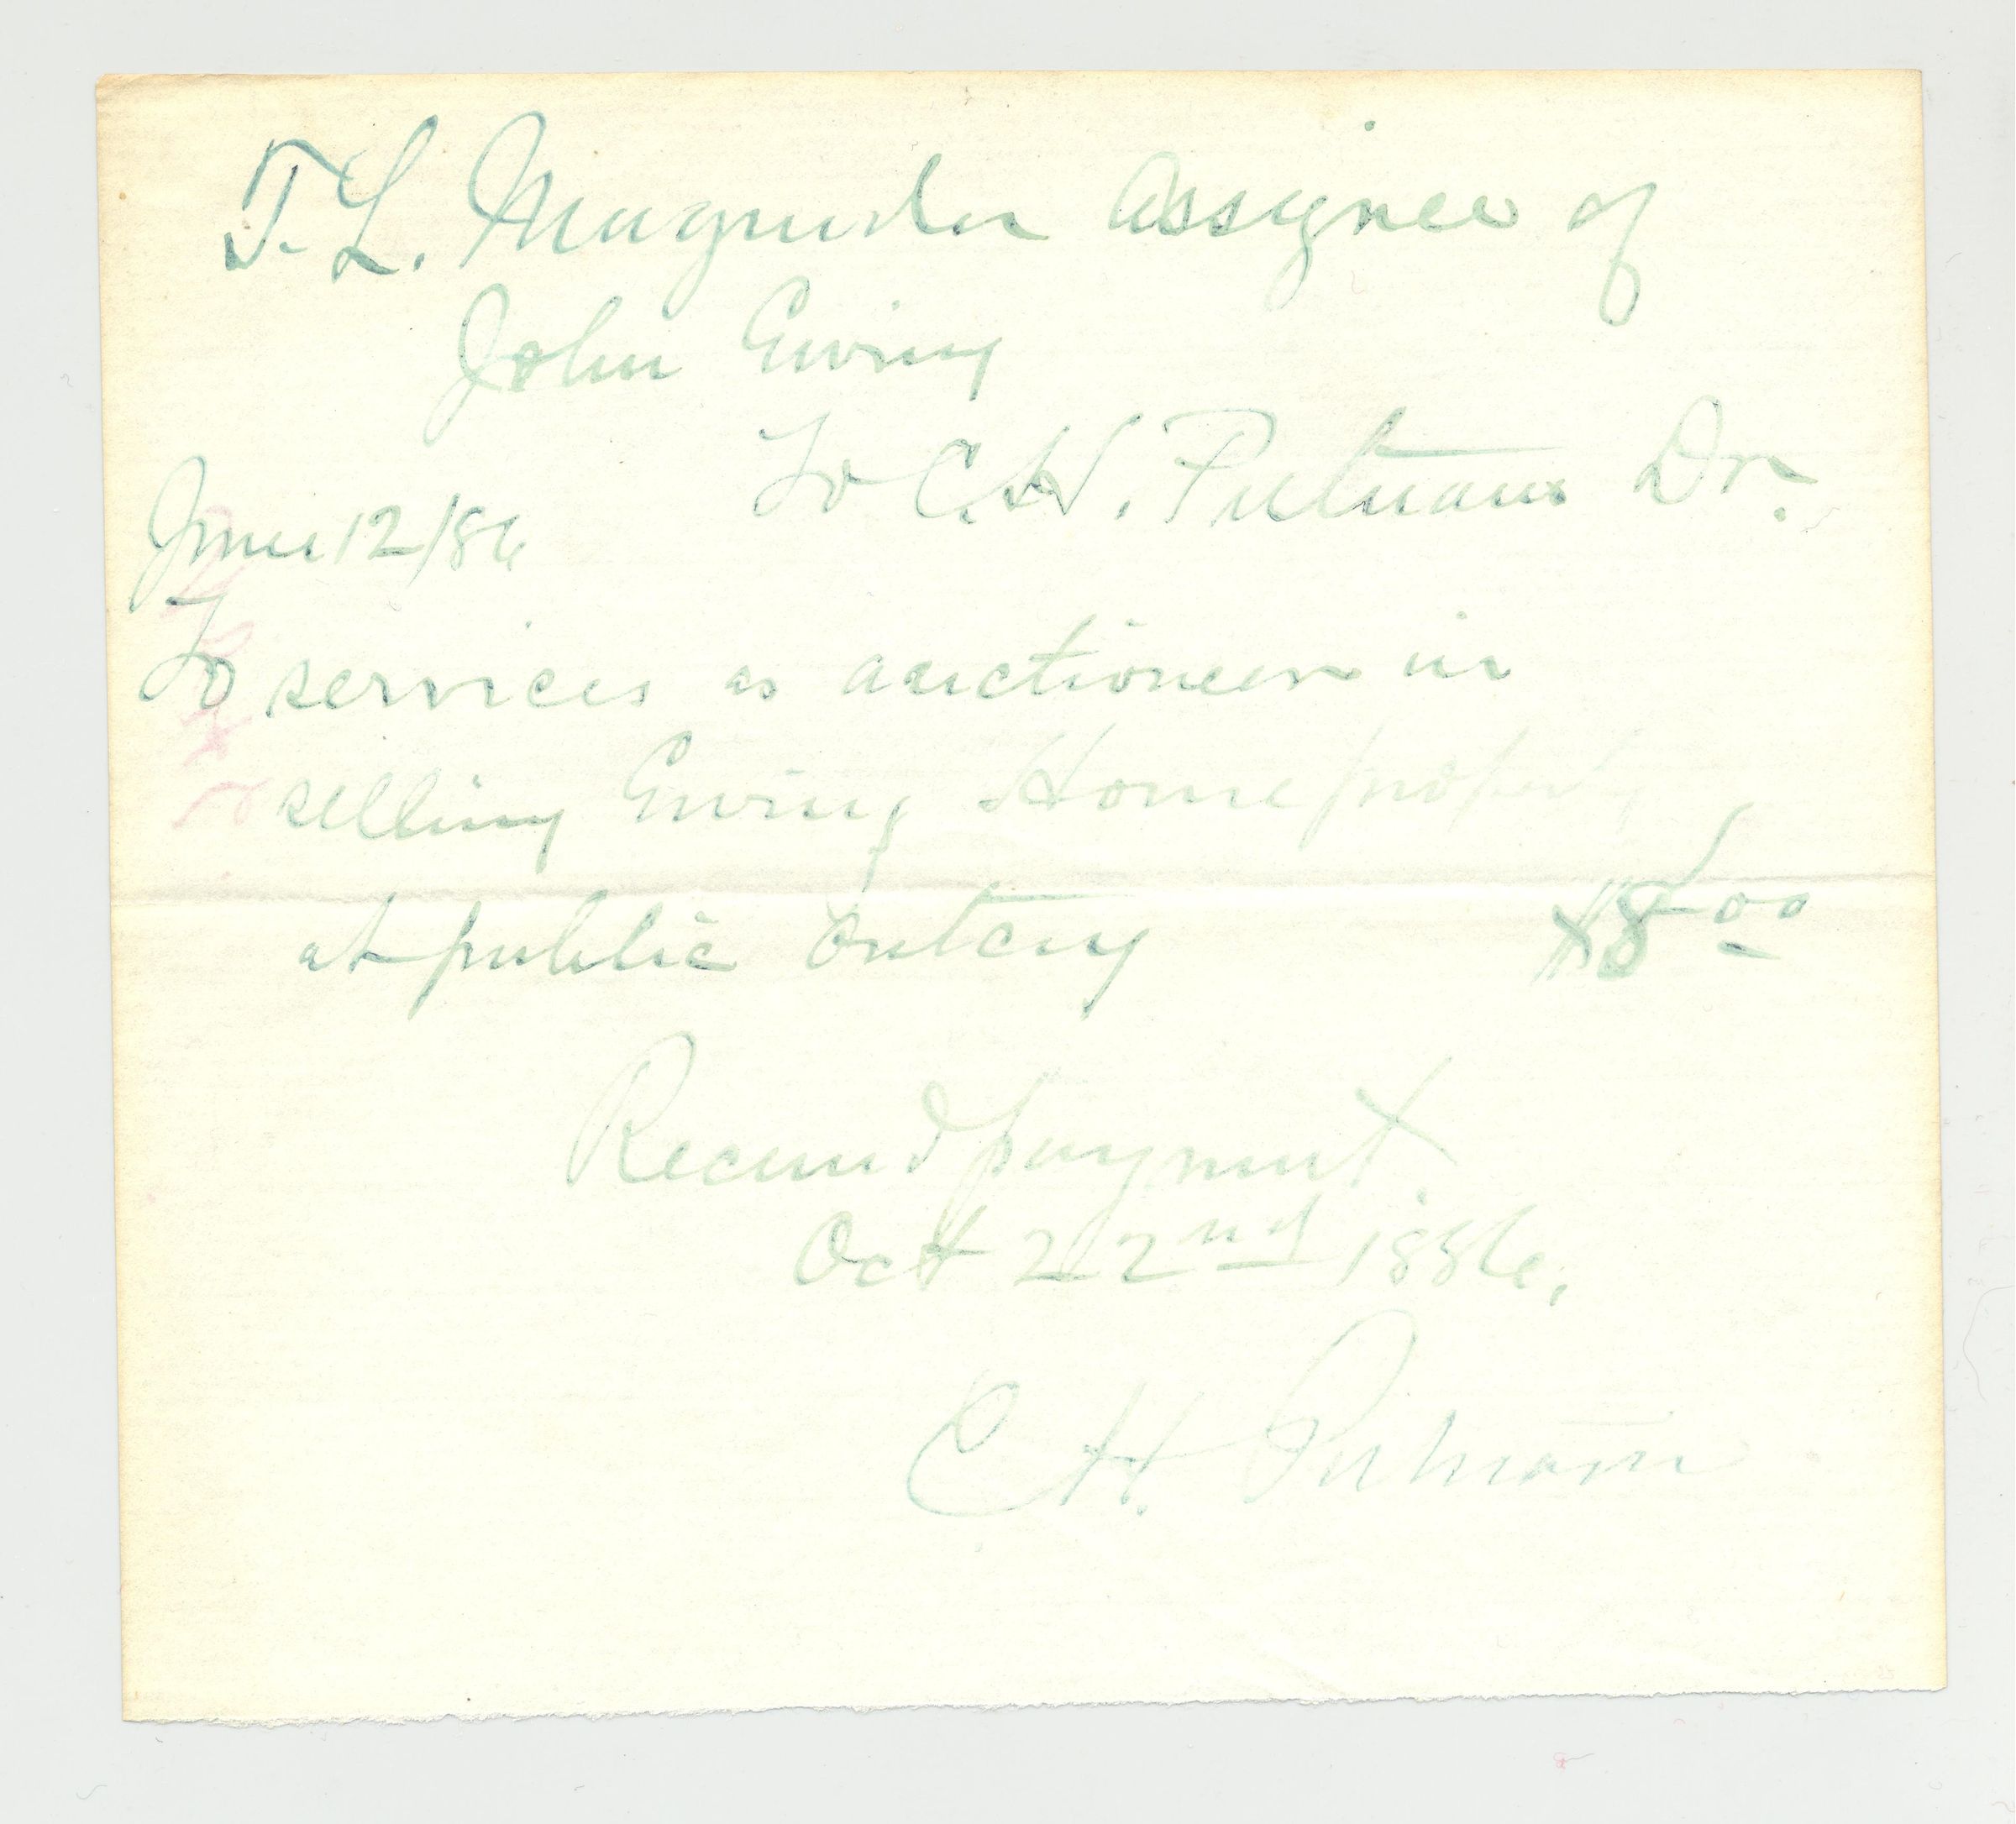 T. L. Magruder Assignee of
John Ewing
To C. H. Putnam Dr.
June 12/86
To services as auctioneer in
selling Ewing Home property
at public outcry $8.00
Received payment
Oct 22nd 1886.
C H. Putnam